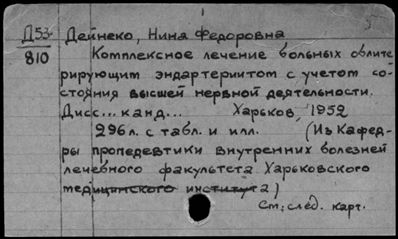 Д53
810
Дейнеко, Нина Федоровна
Комплексное лечение больных облите-
рирующим эндартериитом с учетом со-
стояния высшей нервной деятельности.
Дисс... канд... Харьков, 1952
296л. с табл. и илл. (Из Кафед-
ры пропедевтики внутренних болезней
лечебного факультета Харьковского
медицинского института)
См: след. карт.